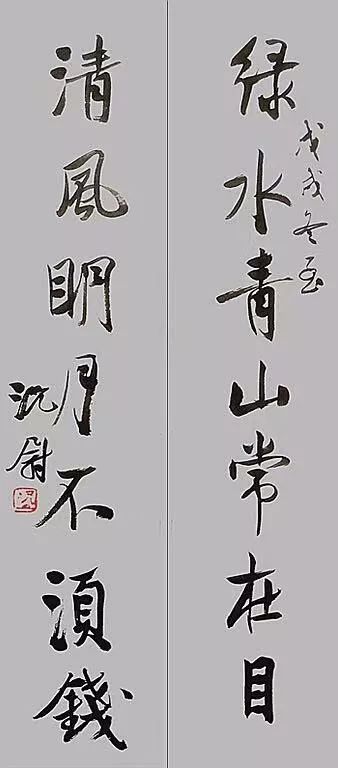 绿水青山常在目
戊戌冬至
清風眀月不湏錢
沈尉